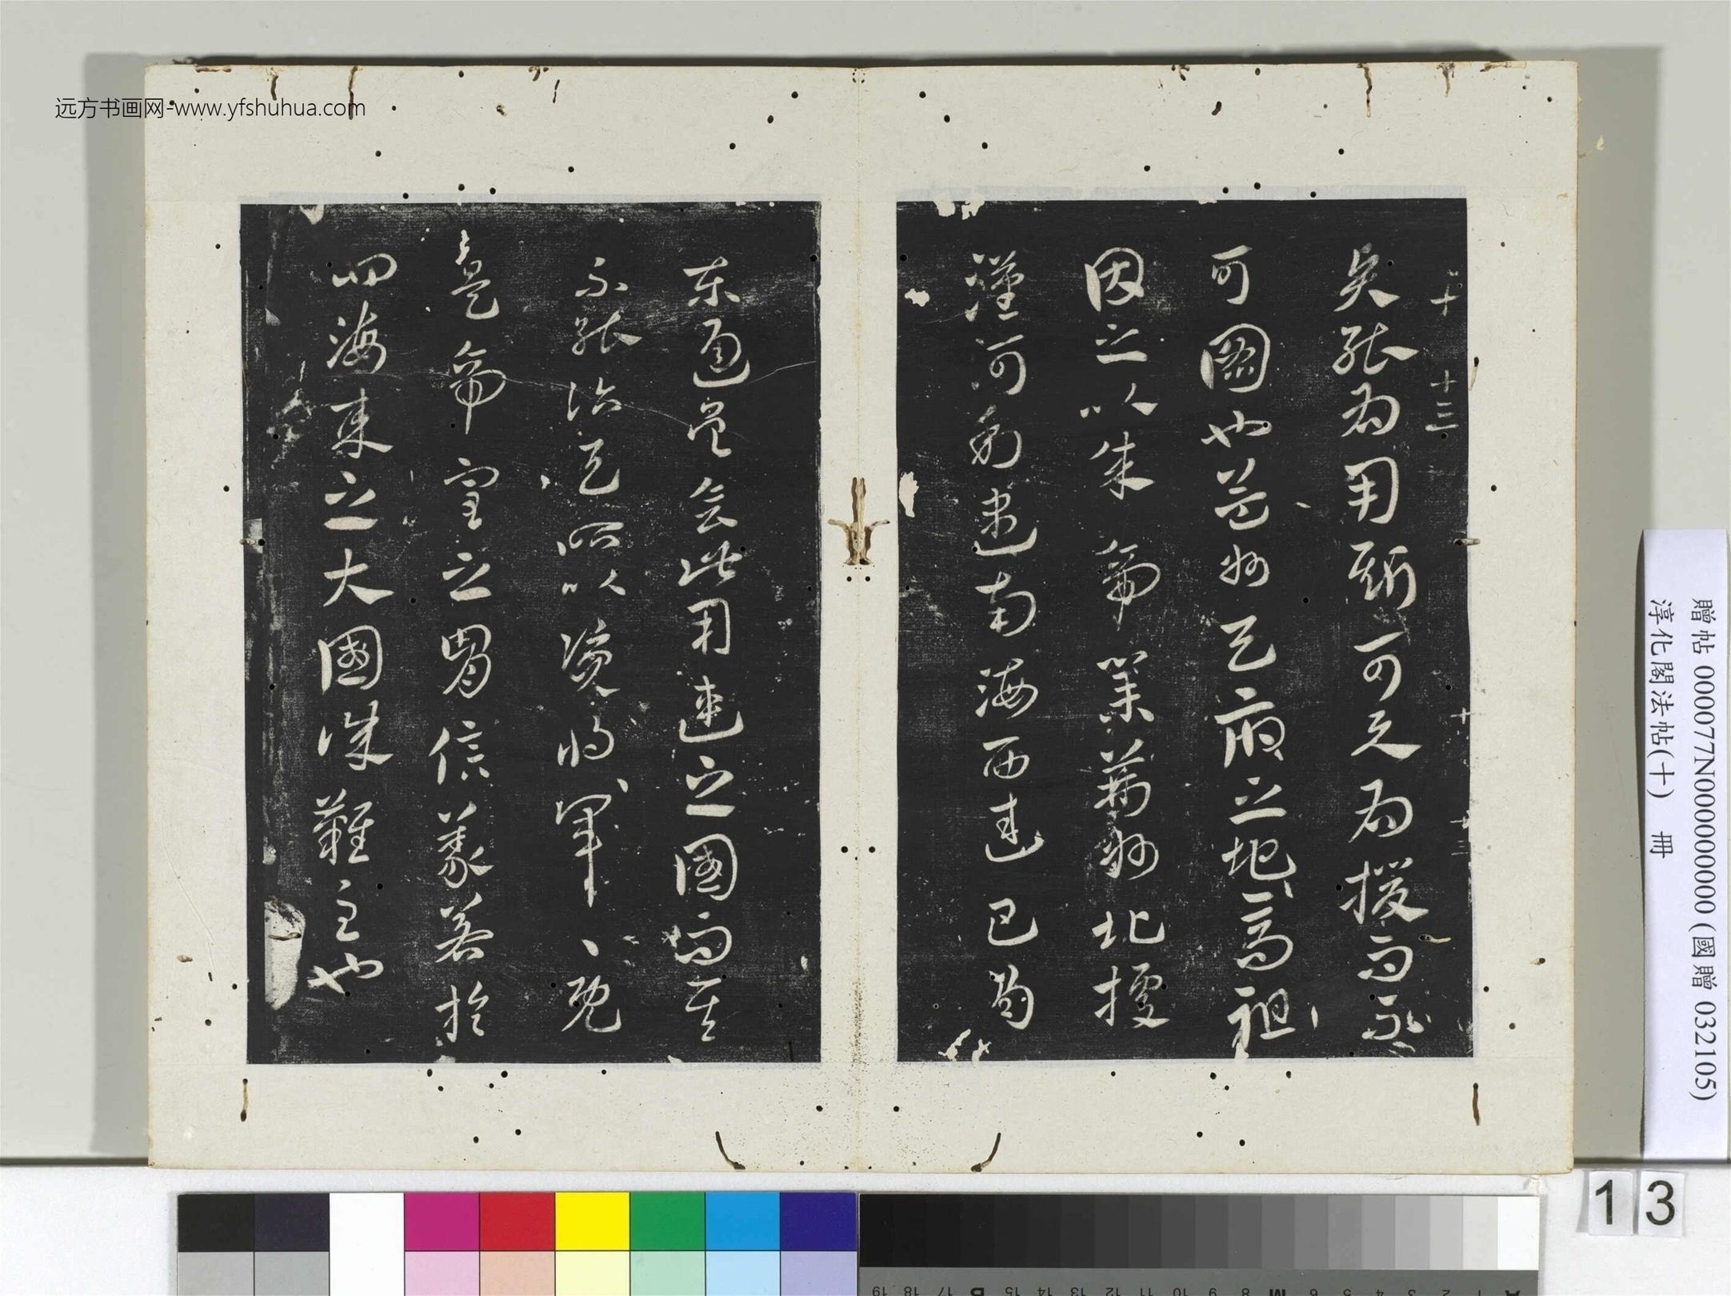 远方书画网-www.yfshuhua.com
十三
矣能為用斯可以為援而不
可圖也益州天府之地高祖
因之以成帝業荊州北據
漢沔利盡南海西連巴蜀
東通吳會此用武之國而其
不能治天所以資將軍、既
是帝室之胄信義著於
四海来之大國誠難主也
贈帖 000077N000000000 (國贈 032105)
淳化閣法帖(十) 冊
13